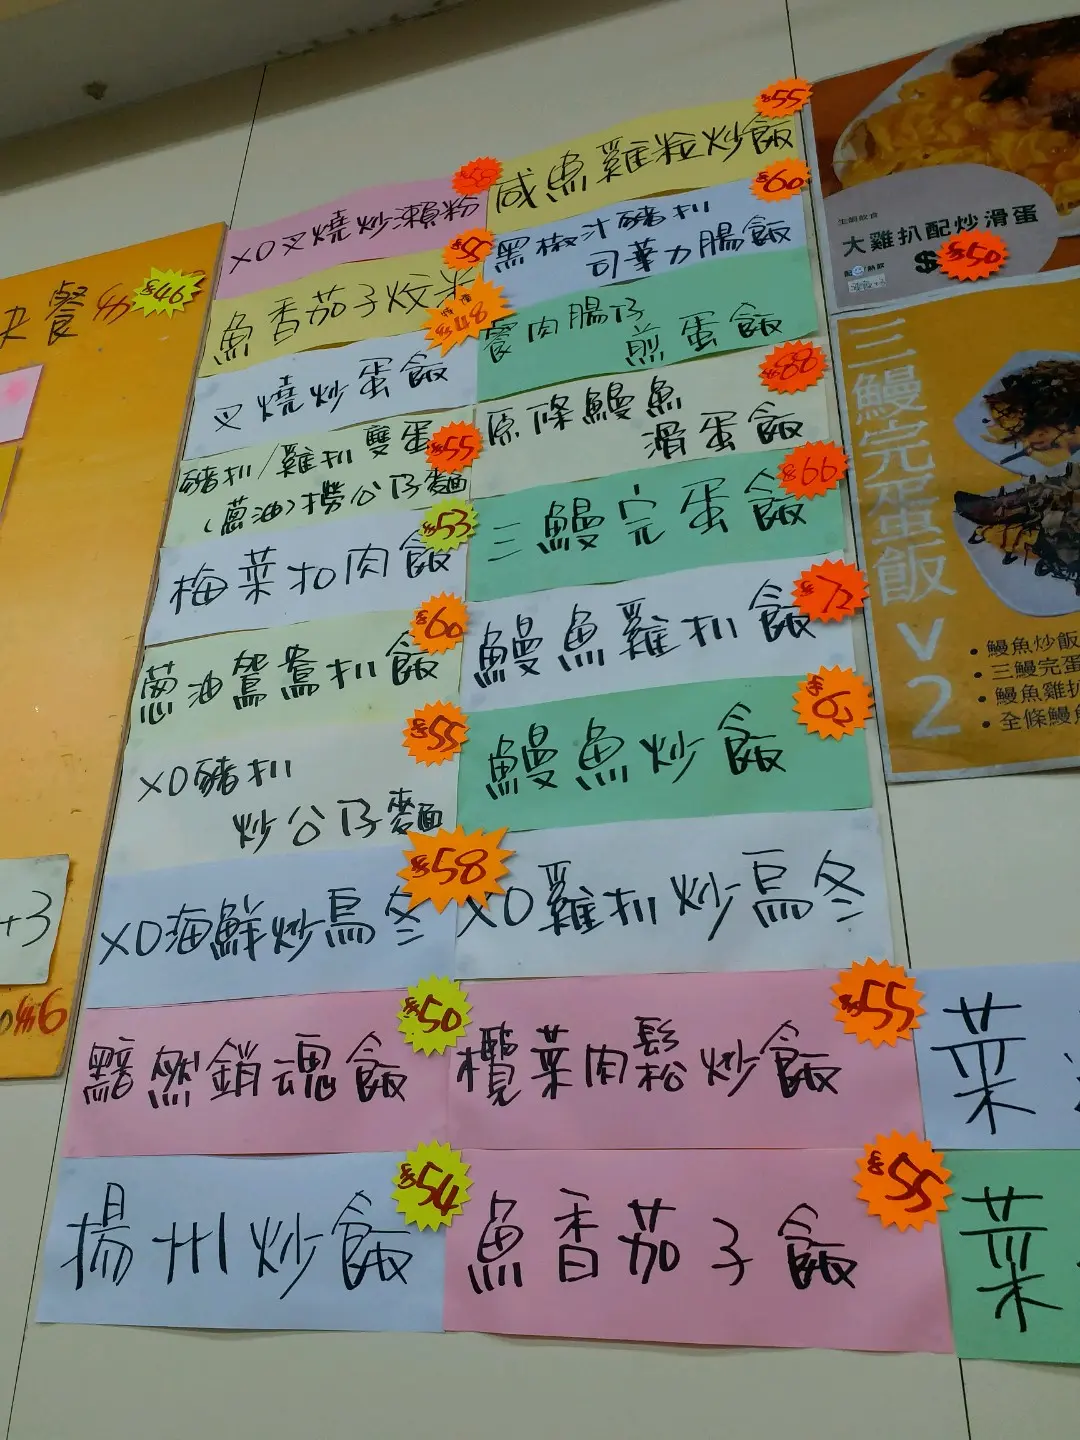 餐
$46
+3
6
$55
XO叉燒炒瀨粉
$55
魚香茄子炆米
$48
叉燒炒蛋飯
豬扒/雞扒雙蛋
$55
(蔥油)撈公仔麵
$53
梅菜扣肉飯
$60
蔥油鴛鴦扒飯
$55
XO豬扒
炒公仔麵
$58
XO海鮮炒烏冬
$50
黯然銷魂飯
$54
揚州炒飯
$55
咸魚雞粒炒飯
$60
黑椒汁豬扒
司華力腸飯
餐肉腸仔
煎蛋飯
$88
原條鰻魚
滑蛋飯
$66
三鰻完蛋飯
$72
鰻魚雞扒飯
$62
鰻魚炒飯
XO雞扒炒烏冬
$55
欖菜肉鬆炒飯
$55
魚香茄子飯
菜
菜
生鋼飲食
大雞扒配炒滑蛋
$50
三鰻完蛋飯
V
2
• 鰻魚炒飯
• 三鰻完蛋
• 鰻魚雞扒
• 全條鰻魚